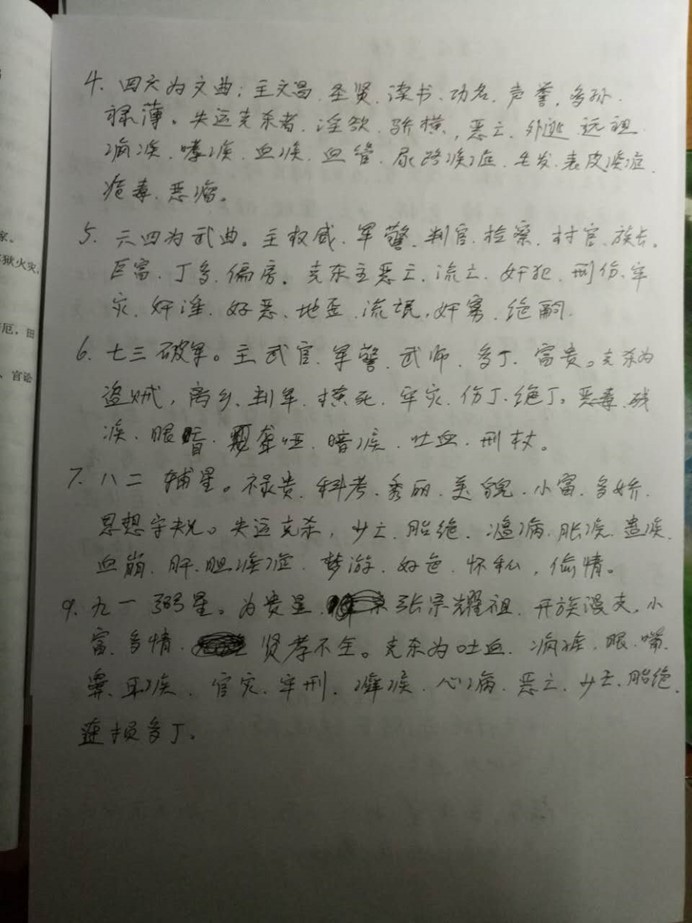 家。
狱火灾,
厄,田
、官讼
4. 四六为文曲:主文昌、圣贤、读书、功名、声誉、多孙、
禄薄。失运克杀者,淫欲、骄横,恶亡、外逃、远祖、
病痰、嗽痰、血痰、血管、尿路痰症、毛发、表皮痰症、
疮毒、恶瘤。
5. 六四为武曲。主权威、军警、判官、检察、村官、族长、
巨富、丁多、偏房。克杀主恶亡、流亡、奸犯、刑伤、牢
灾、奸淫、好恶、地歪、流氓,奸害、绝嗣。
6. 七三破军。主武官、军警、武师、多丁、富贵。克杀为
盗贼,离乡、判军、横死、牢灾、伤丁、绝丁。恶毒、残
痰、眼、聋哑、暗痰、吐血、刑杖。
7. 八二 辅星。禄贵、科考、秀丽、美貌、小富、多娇、
思想守夫。失运克杀,少亡、胎绝、瘟病、胀痰、遗痰、
血崩、肝、胆痰症、梦游、好色、怀私,偷情。
9. 九一 弼星。为贵星、张宗耀祖、开族漫夫、小
富、多情、贤孝不全。克杀为吐血、病痰、眼、嘴、
鼻、耳痰、官灾、牢刑、痰、心病、恶亡、少亡、胎绝、
损多丁。